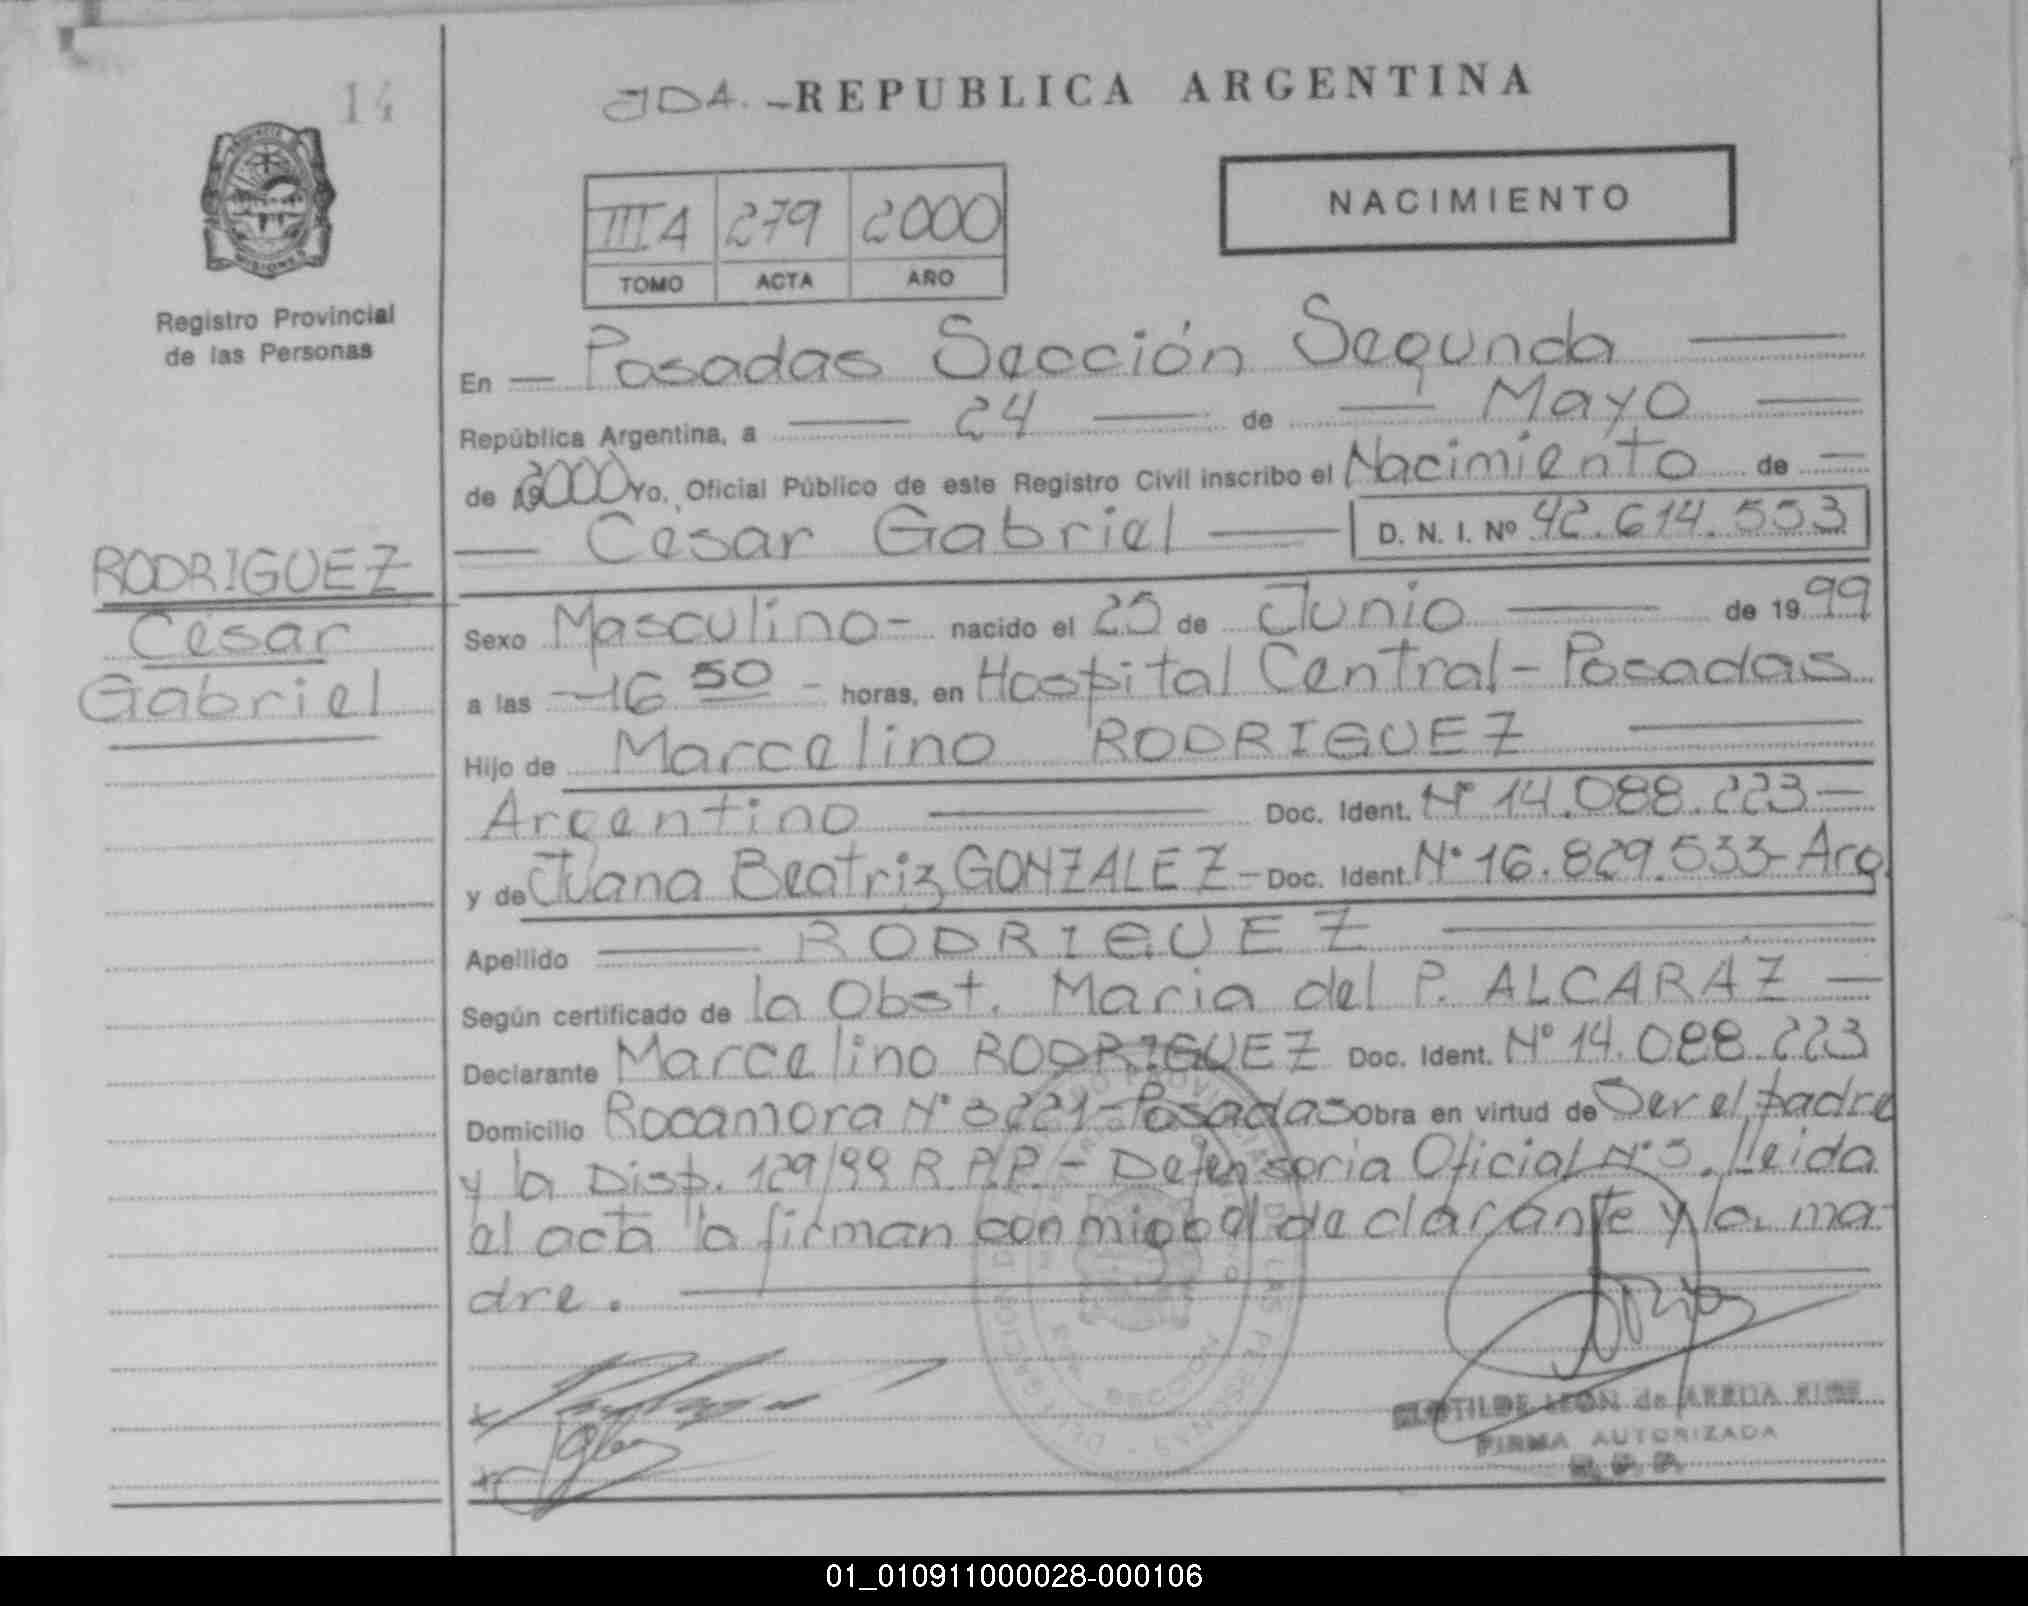 14
JDA. - REPUBLICA ARGENTINA
PROVINCIA
MISIONES
Registro Provincial
de las Personas
III A 279 2000
TOMO ACTA AÑO
NACIMIENTO
En — Posadas Sección Segunda —
República Argentina, a — 24 — de — Mayo —
de 2000 Yo, Oficial Público de este Registro Civil inscribo el Nacimiento de —
— César Gabriel — D. N. I. Nº 42.614.553
RODRIGUEZ
César
Gabriel
Sexo Masculino - nacido el 25 de Junio — de 1999
a las — 16 50 - horas, en Hospital Central - Posadas
Hijo de Marcelino RODRIGUEZ —
Argentino — Doc. Ident. Nº 14.088.223 —
y de Juana Beatriz GONZALEZ - Doc. Ident. Nº 16.829.533 - Arg.
Apellido — RODRIGUEZ —
Según certificado de la Obst. Maria del P. ALCARAZ —
Declarante Marcelino RODRIGUEZ Doc. Ident. Nº 14.088.223
Domicilio Rocamora Nº 3221 - Posadas Obra en virtud de Ser el padre
y la Disp. 129/99 R.P.P. - Defensoria Oficial Nº 3. Lleida
el acta la firman conmigo el declarante y la ma-
dre. —
CLOTILDE LEON de
FIRMA AUTORIZADA
R. P. P.
01_010911000028-000106